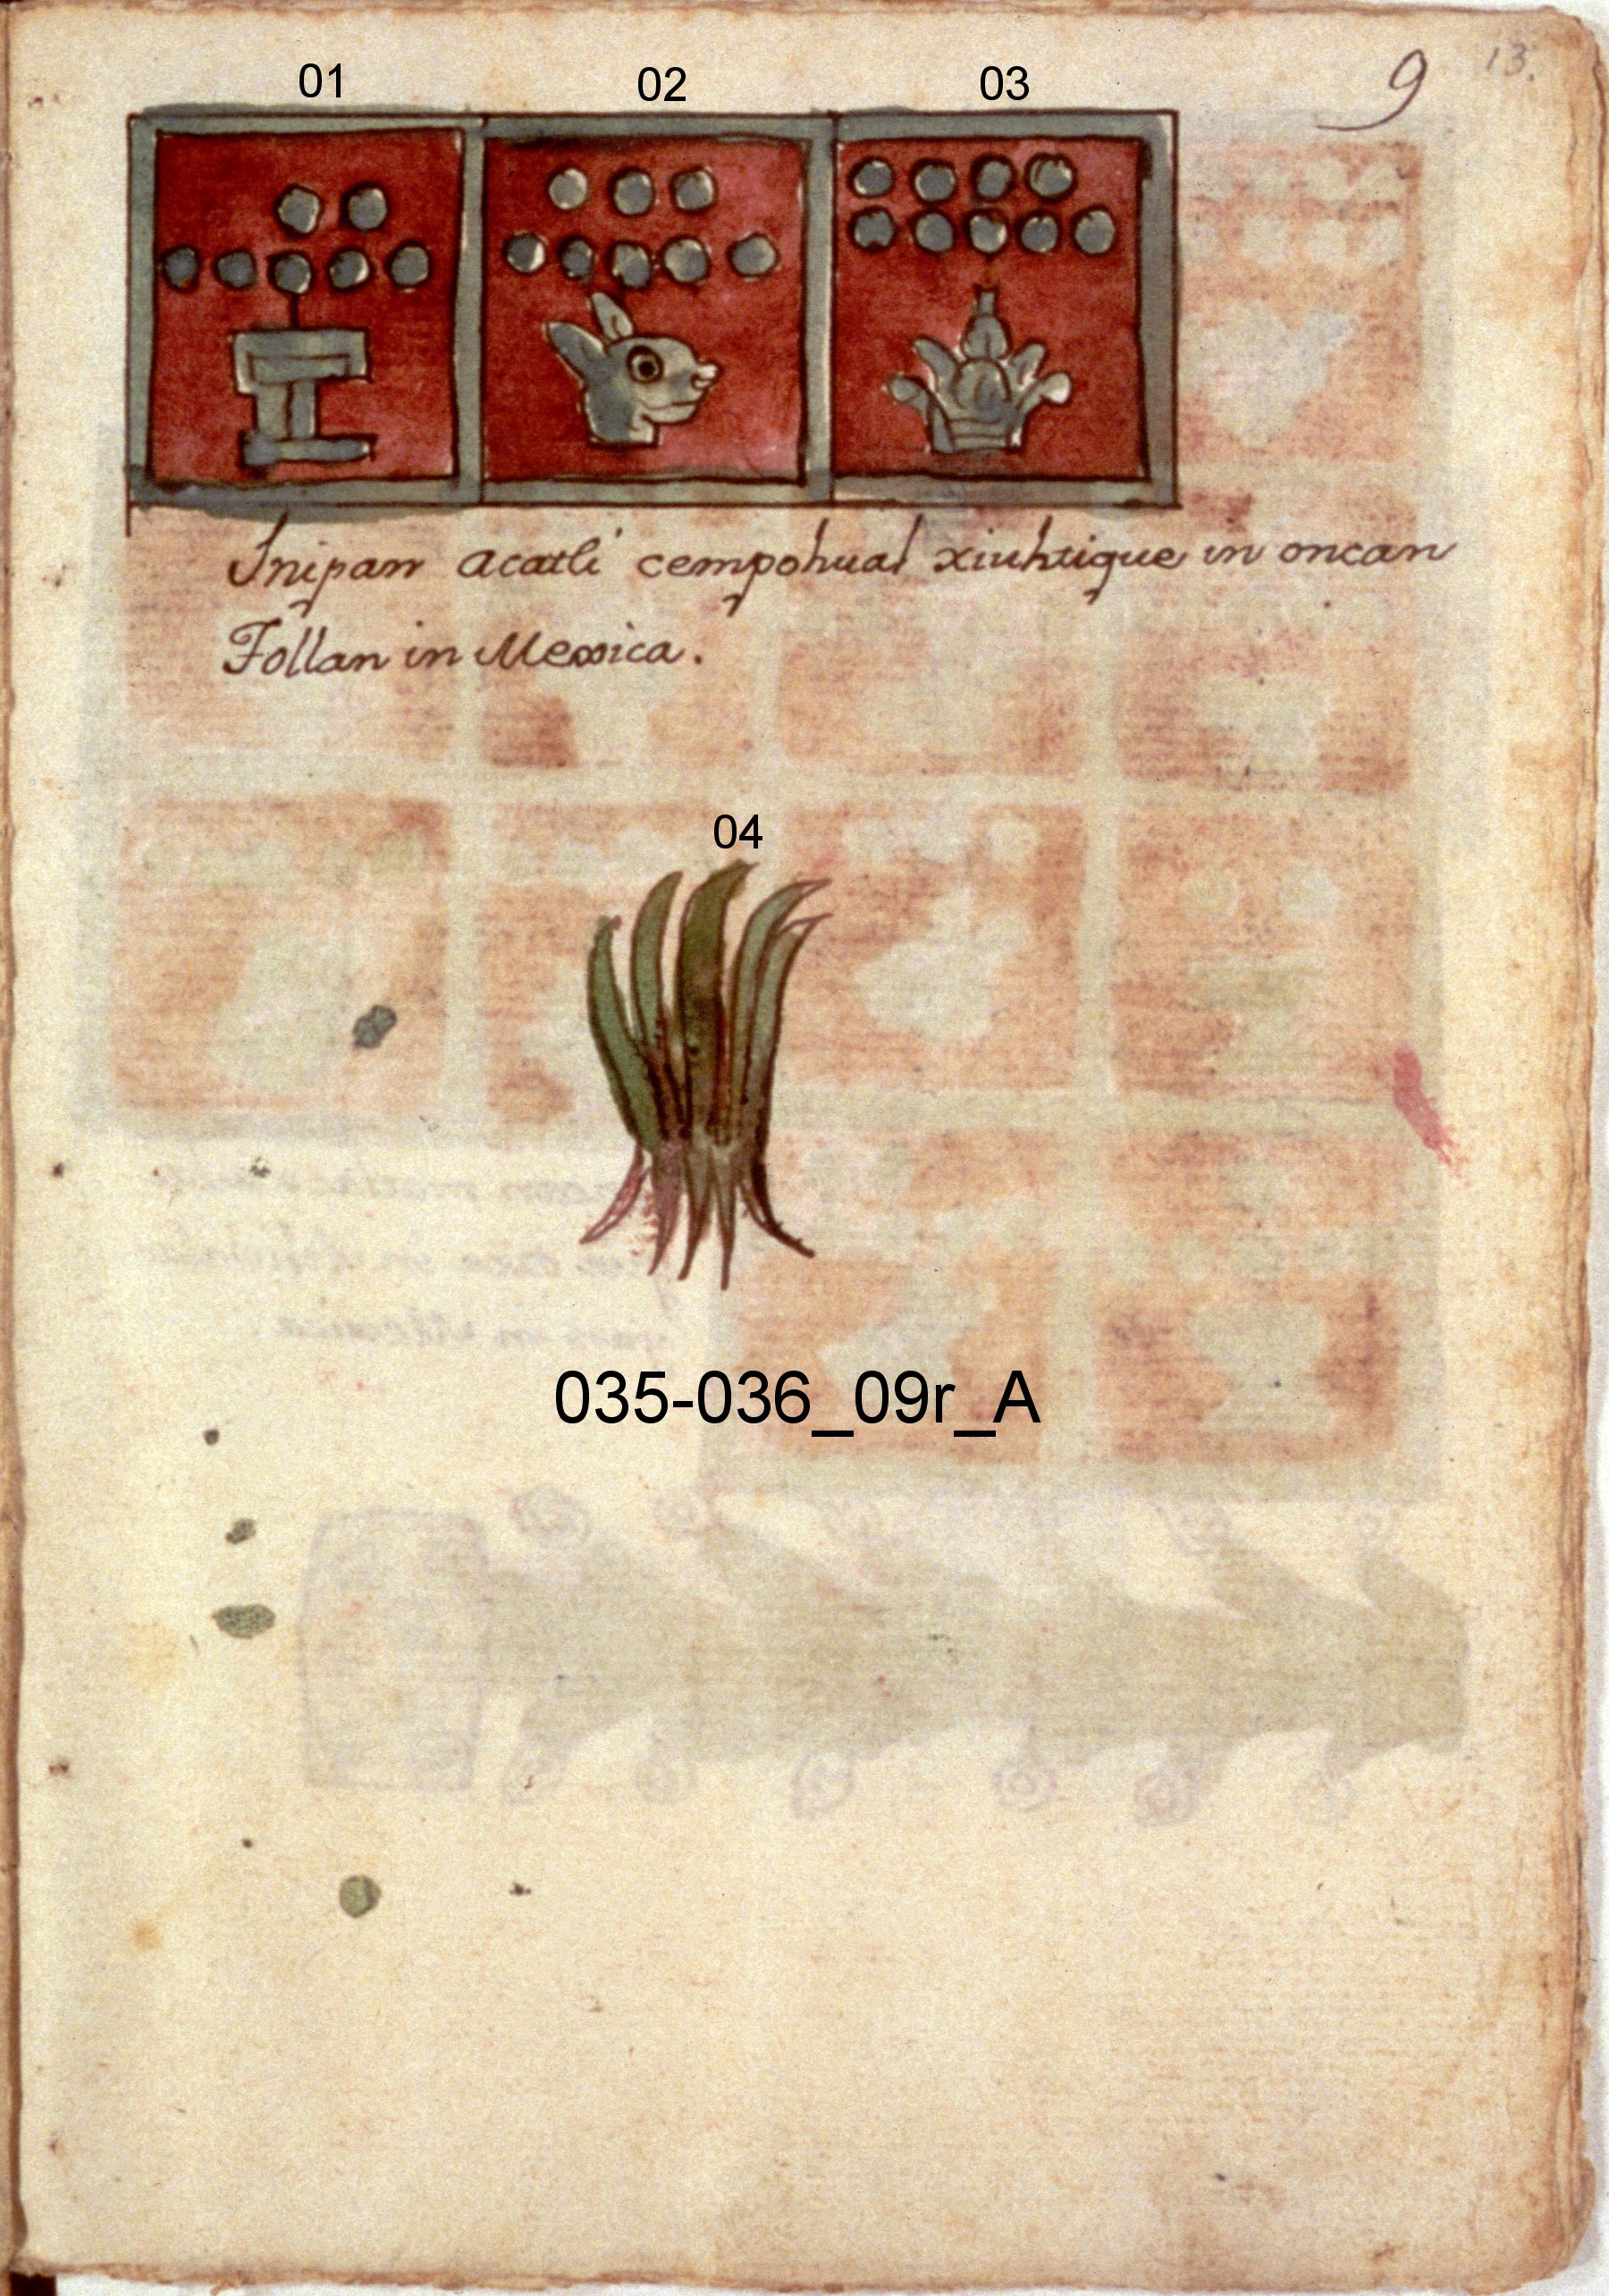 01 02 03 9 13.
Inipan acatli cempohual xiuhtique in oncan
Tollan in Mexica.
04
035-036_09r_A